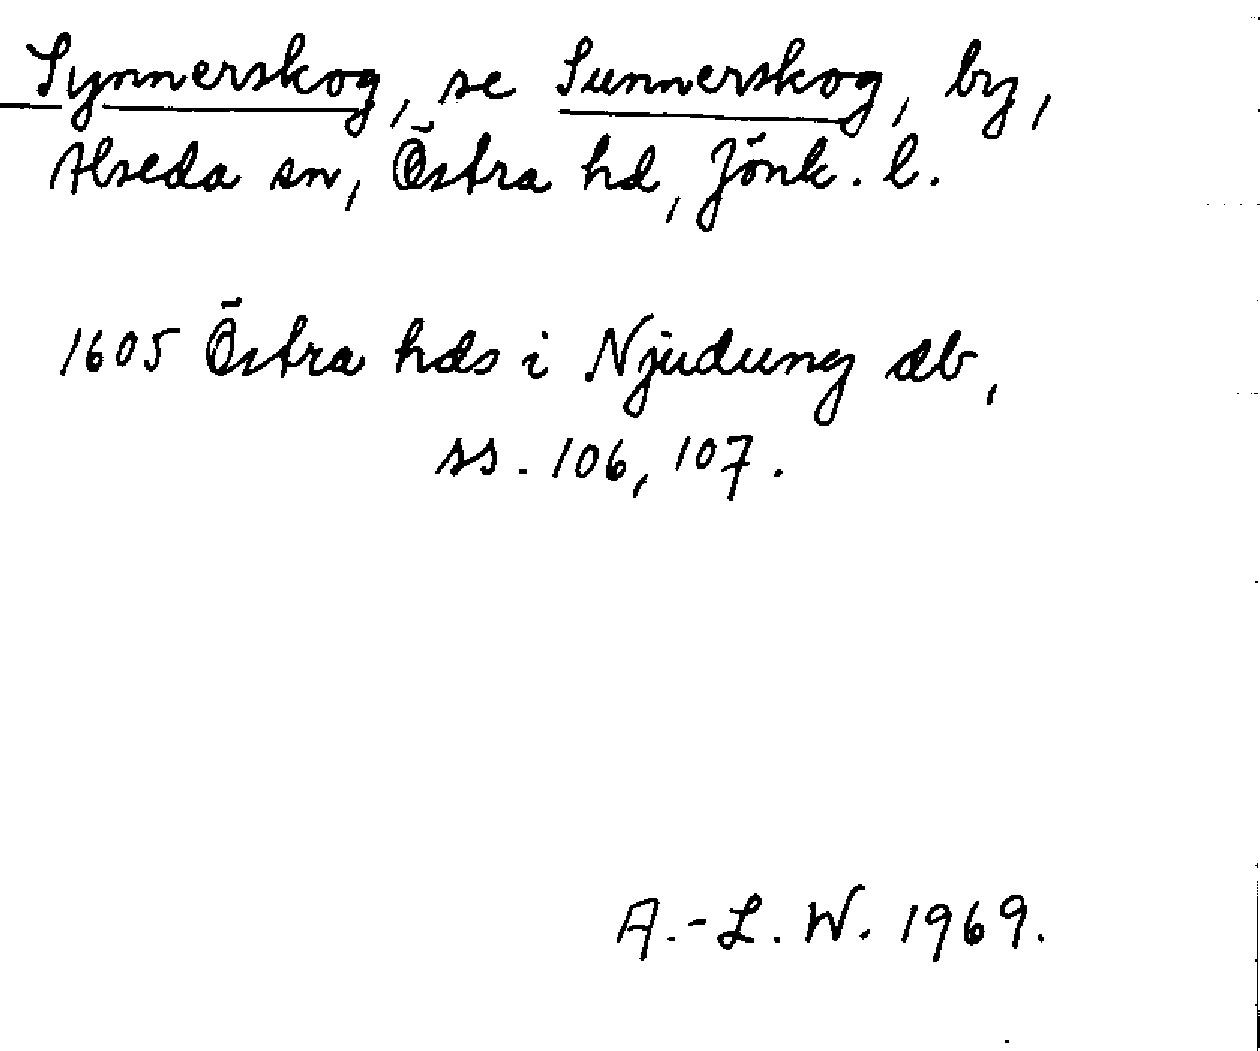 Synnerskog, se Sunnerskog, by,
Alseda sn, Östra hd, Jönk. l.
1605 Östra hds i Njudung db,
ss. 106, 107.
A.-L. W. 1969.